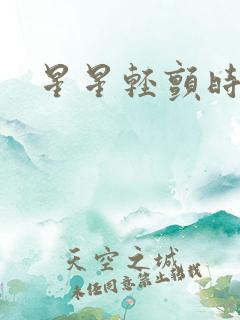 星星輕顫時
天空之城
未经同意禁止转载